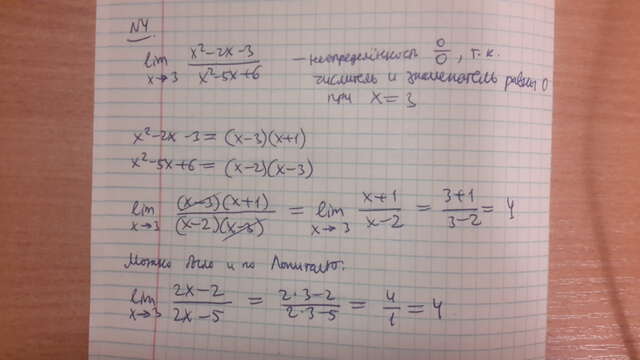 N4
lim x→3 (x²-2x-3)/(x²-5x+6) — неопределённость 0/0, т.к.
числитель и знаменатель равны 0
при x=3
x²-2x-3 = (x-3)(x+1)
x²-5x+6 = (x-2)(x-3)
lim x→3 ((x-3)(x+1))/((x-2)(x-3)) = lim x→3 (x+1)/(x-2) = (3+1)/(3-2) = 4
Можно было и по Лопиталю:
lim x→3 (2x-2)/(2x-5) = (2·3-2)/(2·3-5) = 4/1 = 4